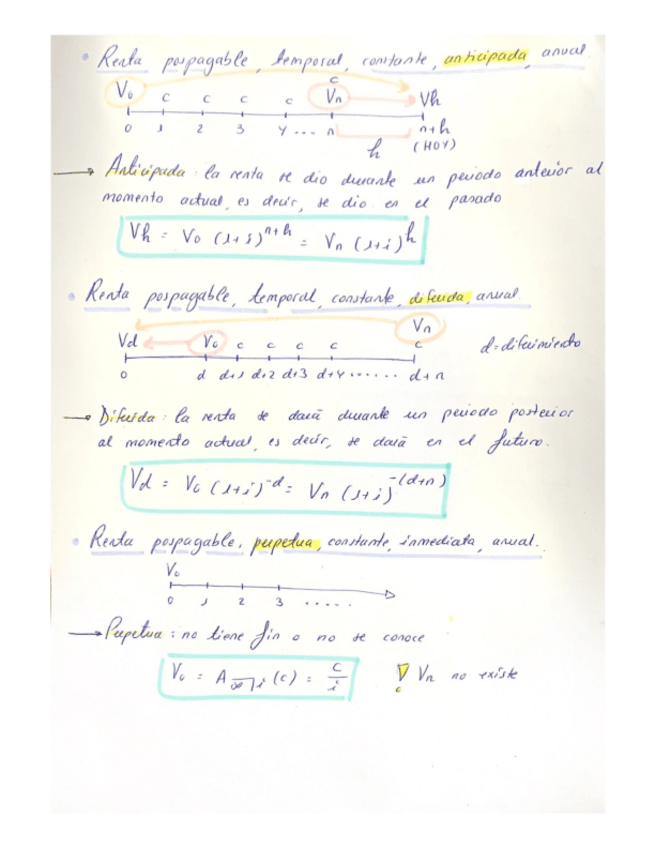 • Renta pospagable, temporal, constante, anticipada, anual.
c
V₀ c c c c Vn Vh
0 1 2 3 4 ... n n+h
h (HOY)
→ Anticipada: la renta se dio durante un periodo anterior al
momento actual, es decir, se dio en el pasado
Vh = V₀ (1+i)^(n+h) = Vn (1+i)^h
• Renta pospagable, temporal, constante, diferida, anual.
Vn
Vd V₀ c c c c c d=diferimiento
0 d d+1 d+2 d+3 d+4 ...... d+n
→ Diferida: la renta se dará durante un periodo posterior
al momento actual, es decir, se dará en el futuro.
Vd = V₀ (1+i)^(-d) = Vn (1+i)^(-(d+n))
• Renta pospagable, perpetua, constante, inmediata, anual.
V₀
0 1 2 3 .....
→ Perpetua: no tiene fin o no se conoce
V₀ = A∞┐i (c) = c/i Vn no existe